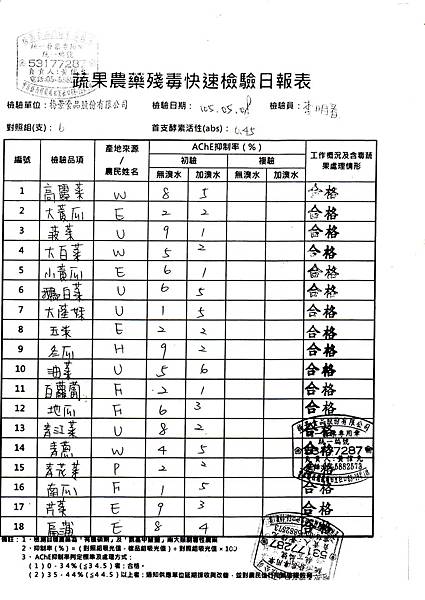 蔬果農藥殘毒快速檢驗日報表
檢驗單位：裕景食品股份有限公司 檢驗日期： 105.05.08 檢驗員：
對照組(支)：6 首支酵素活性(abs)：0.45
編號 檢驗品項 產地來源/農民姓名 AChE抑制率(%) 工作概況及含毒蔬果處理情形
初驗 複驗
無溴水 加溴水 無溴水 加溴水
1 高麗菜 W 8 5 合格
2 大黃瓜 E 2 2 合格
3 菠菜 U 9 1 合格
4 大白菜 W 5 2 合格
5 小黃瓜 E 6 1 合格
6 鵝白菜 U 6 5 合格
7 大陸妹 U 1 5 合格
8 玉米 E 2 2 合格
9 冬瓜 H 9 2 合格
10 油菜 U 5 6 合格
11 白蘿蔔 F 2 1 合格
12 地瓜 F 6 3 合格
13 青江菜 U 8 2 合格
14 青蔥 W 4 5 合格
15 青花菜 P 2 2 合格
16 南瓜 F 1 5 合格
17 芹菜 E 9 3 合格
18 扁蒲 E 8 4 合格
2、抑制率(%)=(對照組吸光值-樣品組吸光值)÷對照組吸光值×100
3、AChE抑制率判定標準及處理方式：
(1) 0-34%(≦34.5)者：合格。
(2) 35-44%(≦44.5)以上者：通知供應單位延期採收與改善，並對農民進行
53177287
53177287
53177287